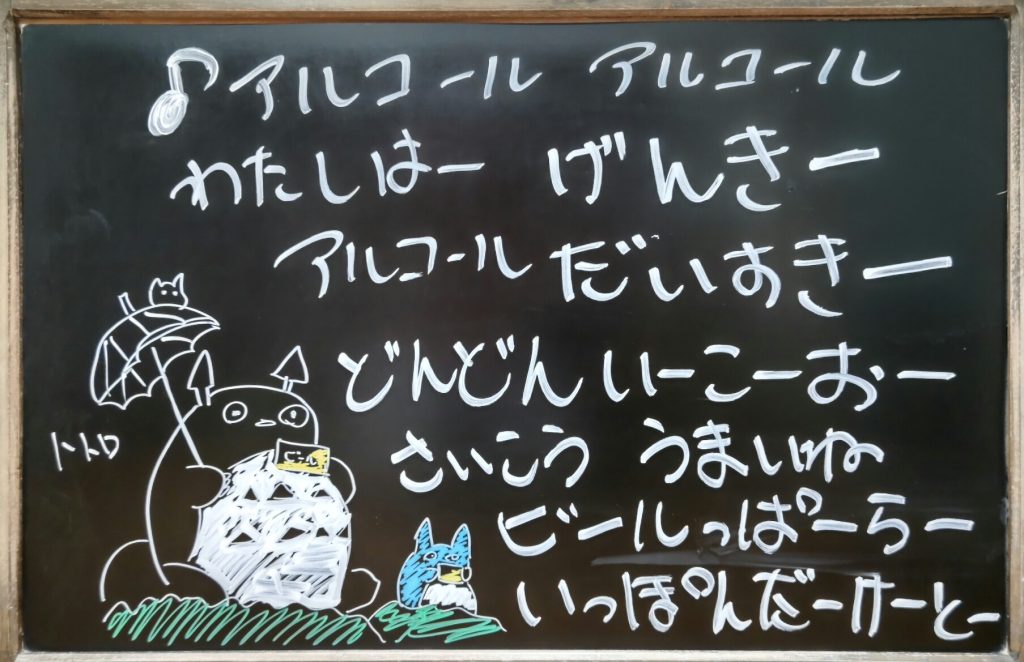 ♪アルコール アルコール
わたしはー げんきー
アルコール だいすきー
どんどん いーこーおー
さいこう うまいね
ビールっぱーらー
いっぽんだーけーとー
トトロ
ビール